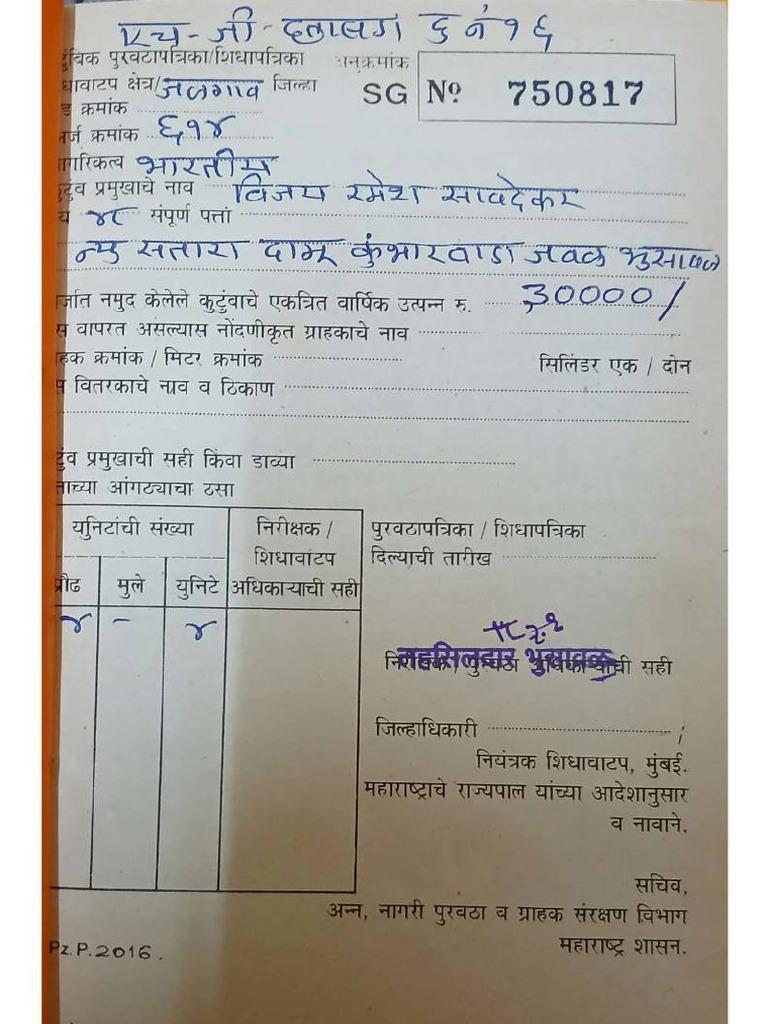 एच-जी-छलासग दु नं १६
टुंबिक पुरवठापत्रिका/शिधापत्रिका अनुक्रमांक
धावाटप क्षेत्र/जळगाव जिल्हा SG Nº 750817
ड क्रमांक
अर्ज क्रमांक ६१४
नागरिकत्व भारतीय
कुटुंब प्रमुखाचे नाव विजय रमेश सावदेकर
य ४८ संपूर्ण पत्तां
न्यु सतारा दामू कुंभारवाडा जवळ भुसावळ
अर्जात नमुद केलेले कुटुंबाचे एकत्रित वार्षिक उत्पन्न रु. 30000/
स वापरत असल्यास नोंदणीकृत ग्राहकाचे नाव
हक क्रमांक / मिटर क्रमांक सिलिंडर एक / दोन
स वितरकाचे नाव व ठिकाण
टुंब प्रमुखाची सही किंवा डाव्या
ताच्या आंगठ्याचा ठसा
युनिटांची संख्या निरीक्षक / पुरवठापत्रिका / शिधापत्रिका
शिधावांटप दिल्याची तारीख
प्रौढ मुले युनिटे अधिकाऱ्याची सही
४ - ४
तहसिलदार भुसावळ
निरीक्षक / पुरवठा अधिकाऱ्याची सही
जिल्हाधिकारी
नियंत्रक शिधावाटप, मुंबई.
महाराष्ट्राचे राज्यपाल यांच्या आदेशानुसार
व नावाने.
सचिव,
अन्न, नागरी पुरवठा व ग्राहक संरक्षण विभाग
महाराष्ट्र शासन.
Pz.P.2016.